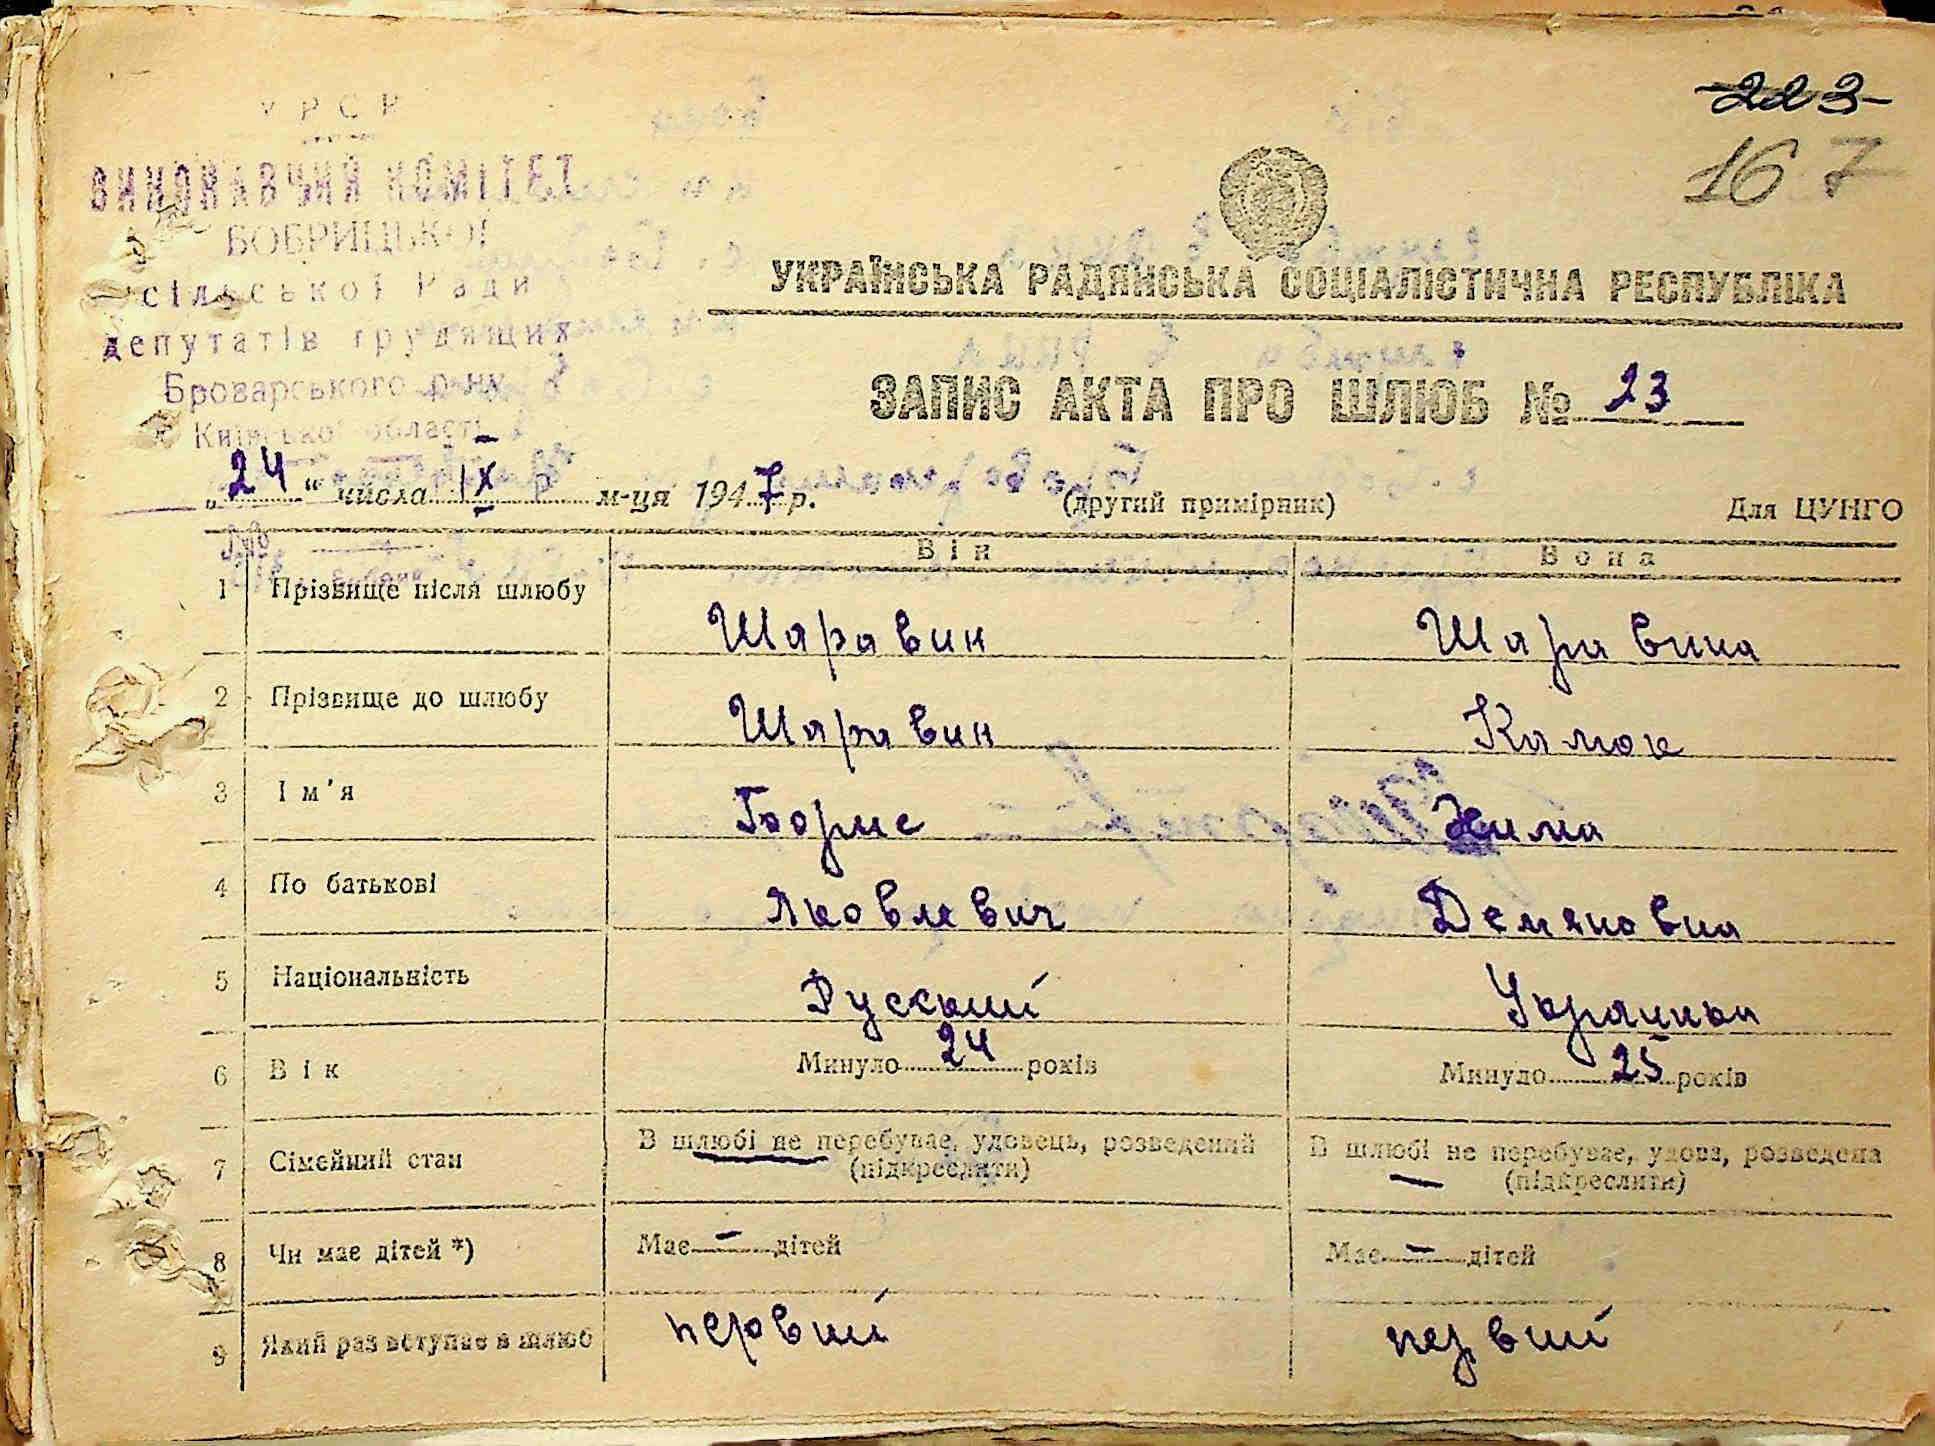 ~~223~~
167
УРСР
ВИКОНАВЧИЙ КОМІТЕТ
БОБРИЦЬКОЇ
сільської Ради
депутатів трудящих
Броварського р-ну
Київської області
УКРАЇНСЬКА РАДЯНСЬКА СОЦІАЛІСТИЧНА РЕСПУБЛІКА
ЗАПИС АКТА ПРО ШЛЮБ № 23
„24“ числа IX м-ця 1947 р. (другий примірник) Для ЦУНГО
Він Вона
1 Прізвище після шлюбу Шаравин Шаравина
2 Прізвище до шлюбу Шаравин Камок
3 Ім'я Борис Хима
4 По батькові Яковлевич Демяновна
5 Національність Руский Украинка
6 Вік Минуло 24 років Минуло 25 років
7 Сімейний стан В шлюбі не перебуває, удовець, розведений В шлюбі не перебуває, удова, розведена
(підкреслити) (підкреслити)
8 Чи має дітей *) Має — дітей Має — дітей
9 Який раз вступає в шлюб первий первий